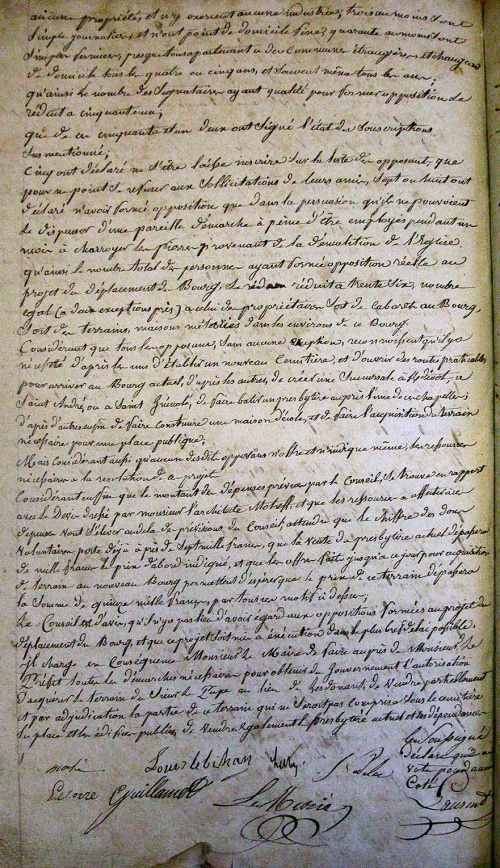 aucune propriété, et n'y exercent aucune industrie; trois au moins sont
simples journaliers et n'ont point de domicile fixe; quarante au moins sont
simples fermiers, presque tous apartenant a des Communes étrangères et changeant
de domicile tous les quatre ou cinq ans, et souvent même tous les ans;
qu'ainsi le nombre des signataires ayant qualité pour former opposition se
réduit a cinquante un;
que de ces cinquante et un deux ont signé l'état des souscriptions
sus mentionné;
Cinq ont déclaré ne s'être laissé inscrire sur la liste des opposants, que
pour ne point se refuser aux sollicitations de leurs amis, sept ou huit ont
déclaré n'avoir formé opposition que dans la persuasion qu'ils ne pouvaient
se dispenser d'une pareille démarche à peine d'être employés pendant un
mois à charroyer les pierres provenant de la démolition de l'Eglise.
qu'ainsi le nombre total des personnes ayant formé opposition réelle au
projet de déplacement du Bourg, se réduit à trente six, nombre
égal (a deux exceptions près) a celui des propriétaires soit de cabarets au Bourg,
soit de terrains, maisons métairies dans les environs de ce Bourg.
Considérant que tous les opposans, sans aucune exception, reconnaissent qu'il y a
nécessité d'après les uns d'établir un nouveau Cimetière, et d'ouvrir des routes praticables
pour arriver au Bourg actuel, d'après les autres, de créer une succursale à
Saint André ou a Saint Guénolé, de faire bâtir un presbytère auprès l'une de ces chapelles;
d'après d'autres enfin de faire construire une maison d'école, et de faire l'acquisition du terrain
nécessaire pour une place publique;
Mais considérant aussi qu'aucun des dit opposans n'offre et n'indique même, les ressources
nécessaires a la résolution de ce projet
Considérant enfin que le montant des dépenses prévues par le Conseil, se trouve en rapport
avec le Devis dressé par monsieur l'architecte et que les ressources a affecter a ces
dépenses vont s'élever au dela des prévisions du Conseil, attendu que le chiffre des dons
volontaires porte déjà à près de sept mille francs, que la vente du presbytère actuel dépassera
de mille francs le prix d'abord indiqué, et que les offres fait jusqu'a ce jour pour acquisition
de terrain au nouveau Bourg permettent d'espérer que le prix de ce terrain dépassera
la somme de quinze mille francs, par tous ces motifs ci dessus,
Le Conseil est d'avis, qu'il n'y a pas lieu d'avoir égard aux oppositions formées au projet du
déplacement du Bourg, et que ce projet soit mis à exécution dans le plus bref délai possible.
Il charge en Conséquence Monsieur le Maire de faire auprès de Monsieur le
Préfet toutes les démarches nécessaires pour obtenir du Gouvernement l'autorisation
d'acquérir le terrain du Sieur Le Pape au lieu de de vendre partiellement
et par adjudication la partie de ce terrain qui ne serait pas comprise sous le cimetière
la place et les édifices publics, de vendre également le presbytère actuel et ses dépendances
Le soussigné
déclare qu'il a
voté pour
Laurent
Louis le bihan
Guillamet
Le Mérie